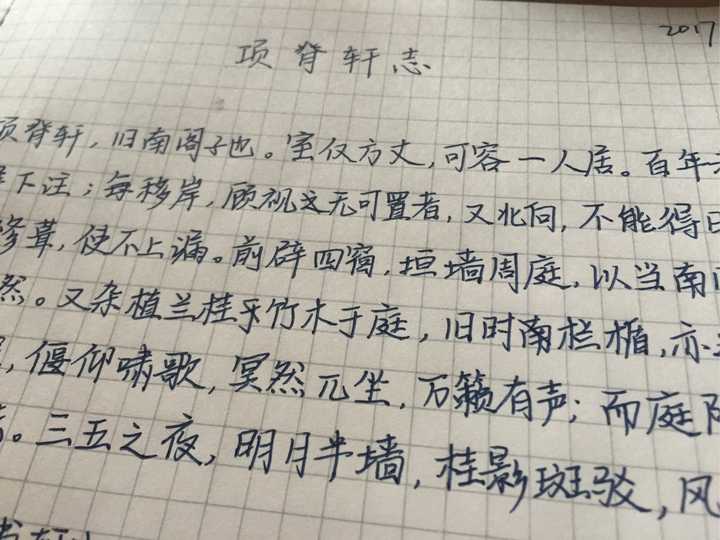 2017
项脊轩志
项脊轩，旧南阁子也。室仅方丈，可容一人居。百年
下注；每移岸，顾视无可置者，又北向，不能得日
修葺，使不上漏。前辟四窗，垣墙周庭，以当南
然。又杂植兰桂于竹木于庭，旧时南栏楯，亦
，偃仰啸歌，冥然兀坐，万籁有声；而庭阶
。三五之夜，明月半墙，桂影斑驳，风